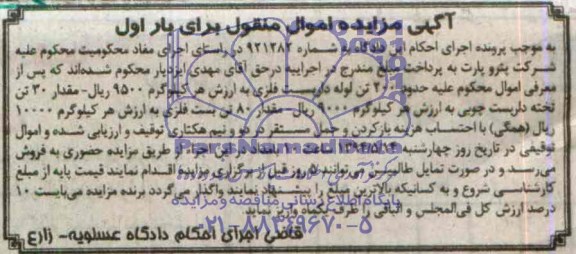 آگهی مزایده اموال منقول برای بار اول
به موجب پرونده اجرای احکام این دادگاه به شماره ۹۲۱۲۸۲ در راستای اجرای مفاد محکومیت محکوم علیه
شرکت پترو پارت به پرداخت مبلغ مندرج در اجراییه درحق آقای مهدی ایزدیار محکوم شده‌اند که پس از
معرفی اموال محکوم علیه حدود ۲۰۰ تن لوله داربست فلزی به ارزش هر کیلوگرم ۹۵۰۰ ریال- مقدار ۳۰ تن
تخته داربست چوبی به ارزش هر کیلوگرم ۹۰۰۰ ریال- مقدار ۸۰ تن بست فلزی به ارزش هر کیلوگرم ۱۰۰۰۰
ریال (همگی) با احتساب هزینه بازکردن و حمل مستقر در دو و نیم هکتاری توقیف و ارزیابی شده و اموال
توقیفی در تاریخ روز چهارشنبه ۱۳۹۴/۵/۱۴ ساعت در این اجراء از طریق مزایده حضوری به فروش
می‌رسد و در صورت تمایل طالبین می‌توانند ۵ روز قبل از برگزاری مزایده اقدام نمایند قیمت پایه از مبلغ
کارشناسی شروع و به کسانیکه بالاترین مبلغ را پیشنهاد نمایند واگذار می‌گردد برنده مزایده می‌بایست ۱۰
درصد ارزش کل فی‌المجلس و الباقی را ظرف یکماه واریز نماید
قاضی اجرای احکام دادگاه عسلویه- زارع
ParsNamadData
پایگاه اطلاع رسانی مناقصه و مزایده
۰۲۱-۸۸۳۴۹۶۷۰-۵